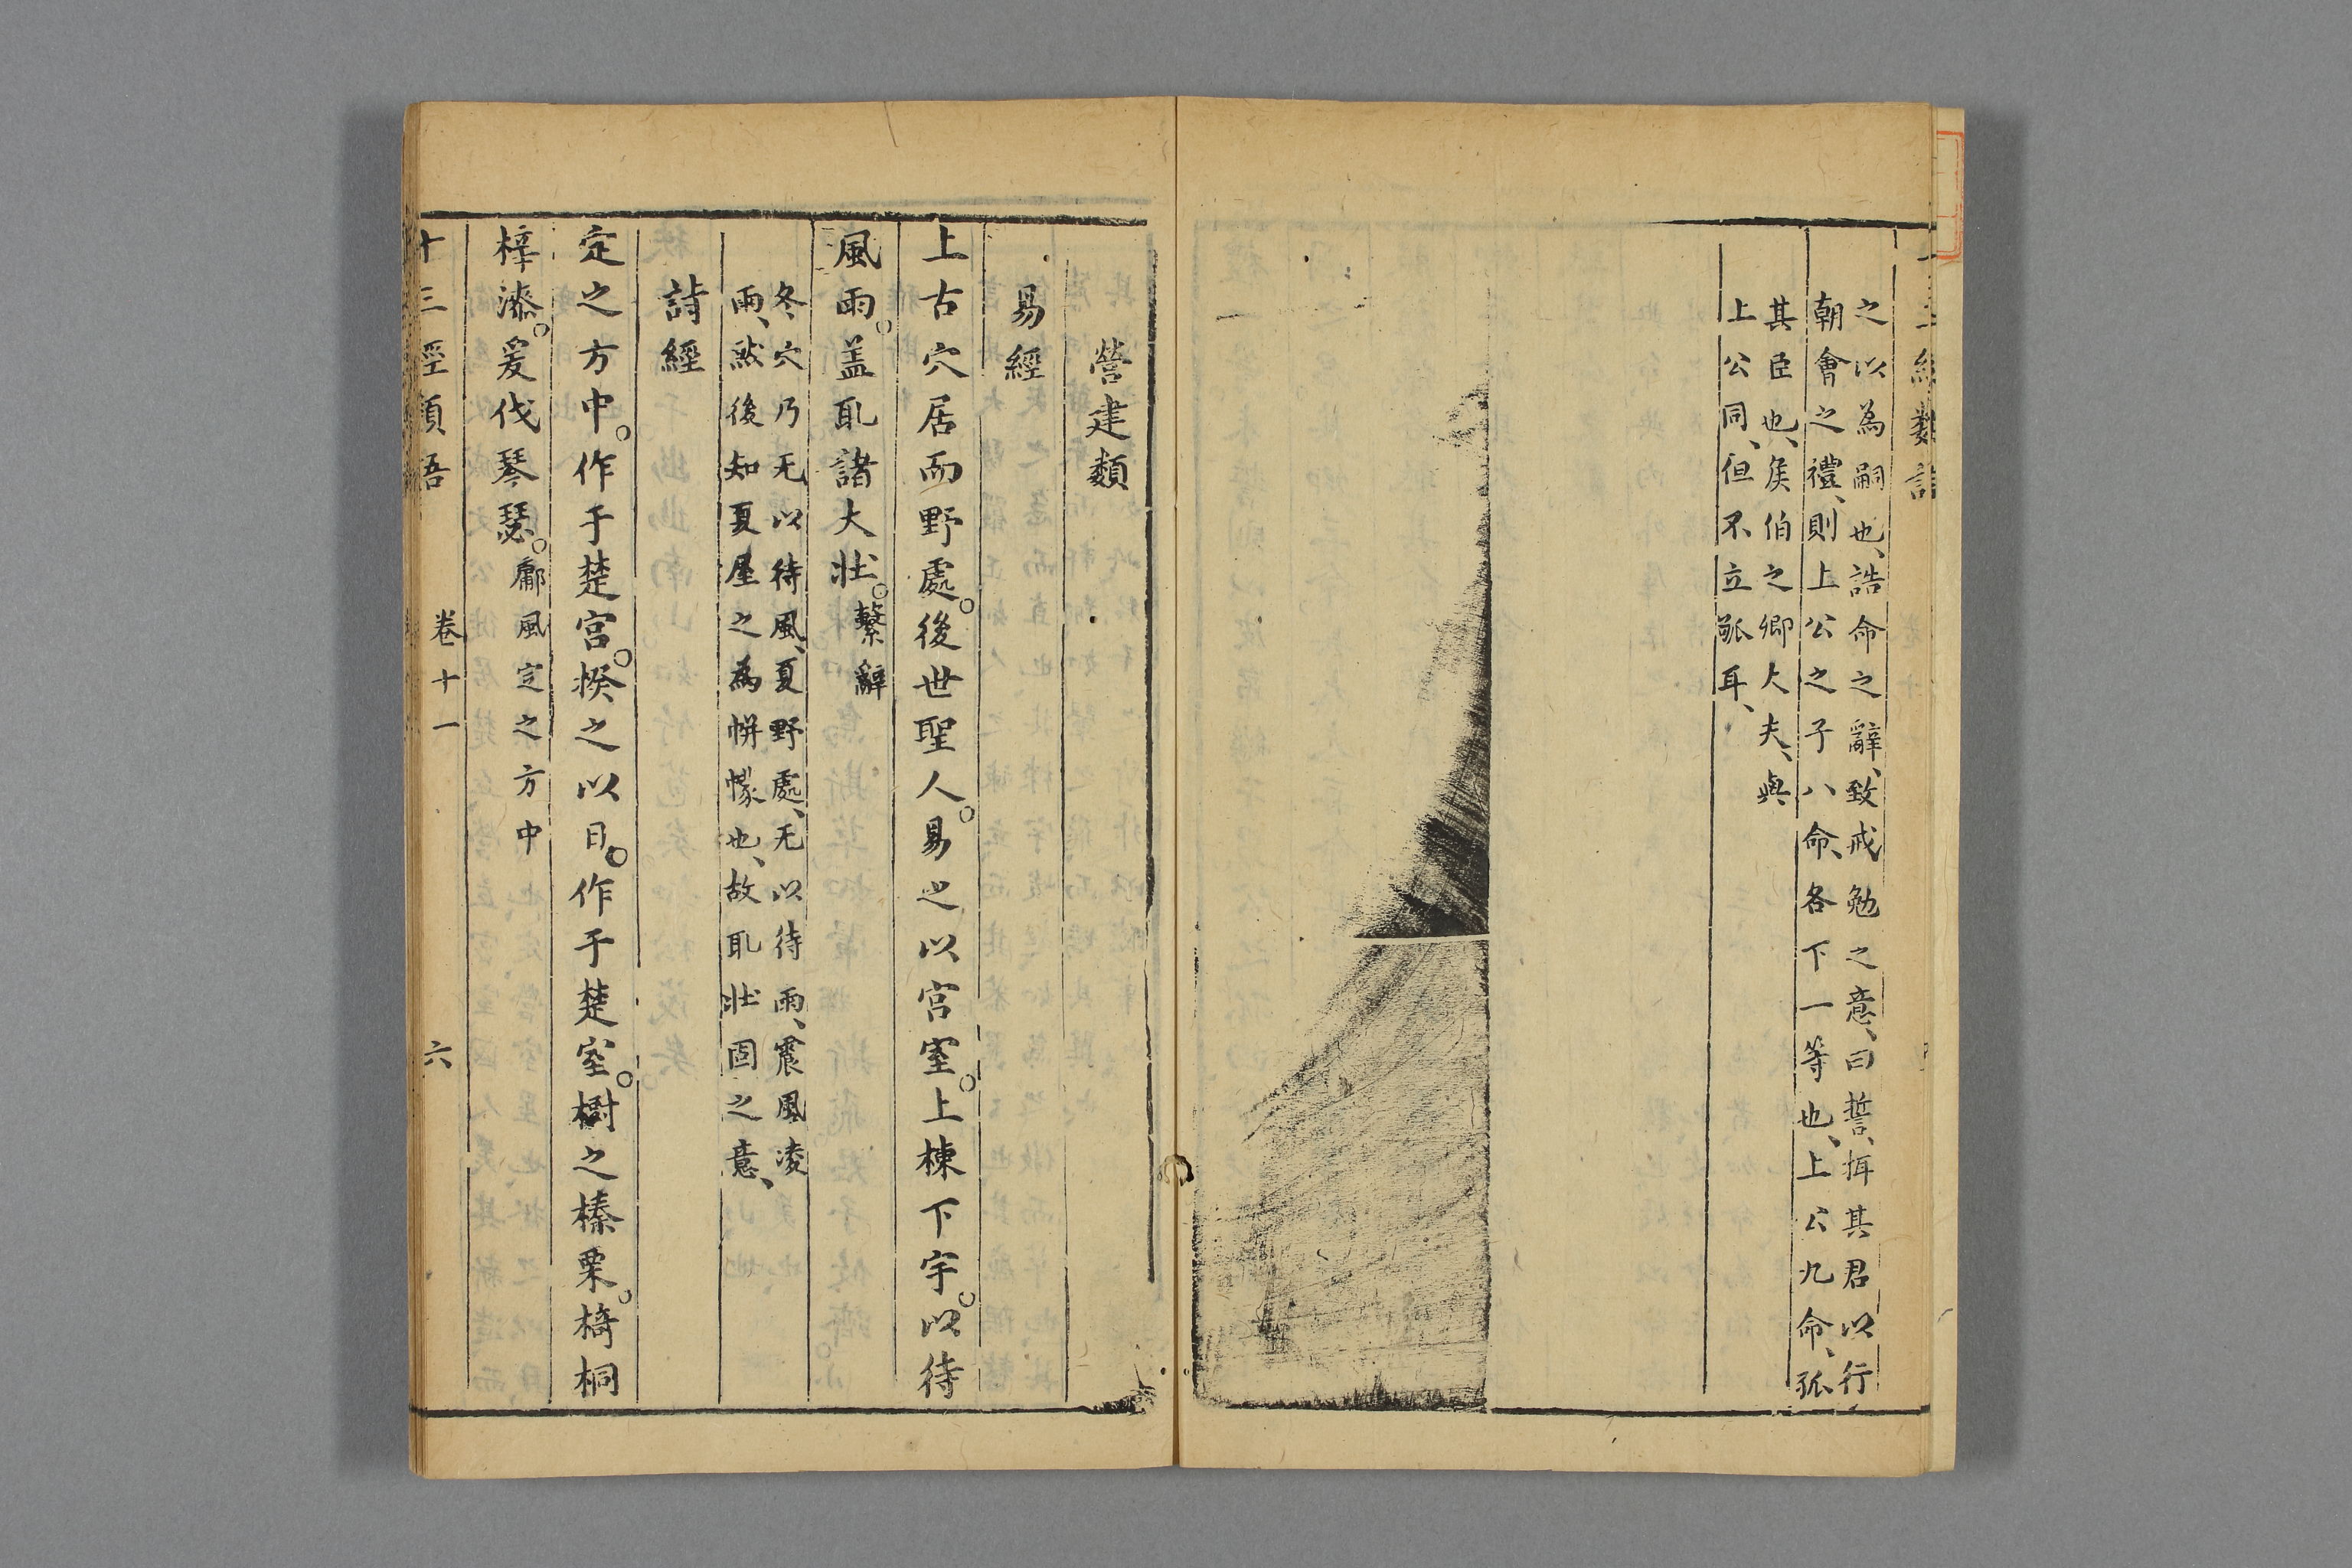 之以為嗣也、誥命之辭、致戒勉之意、曰誓、揖其君以行
朝會之禮、則上公之子八命、各下一等也、上公九命、孤
其臣也、矦伯之卿大夫、與
上公同、但不立孤耳、
營建類
易經
上古穴居而野處。後世聖人。易之以宮室。上棟下宇。以待
風雨。盖耴諸大壯。繫辭
冬穴乃无以待風、夏野處、无以待雨、震風凌
雨、然後知夏屋之為帡幪也、故耴壯固之意、
詩經
定之方中。作于楚宮。揆之以日。作于楚室。樹之榛栗。椅桐
梓漆。爰伐琴瑟。鄘風定之方中
十三經類語 卷十一 六